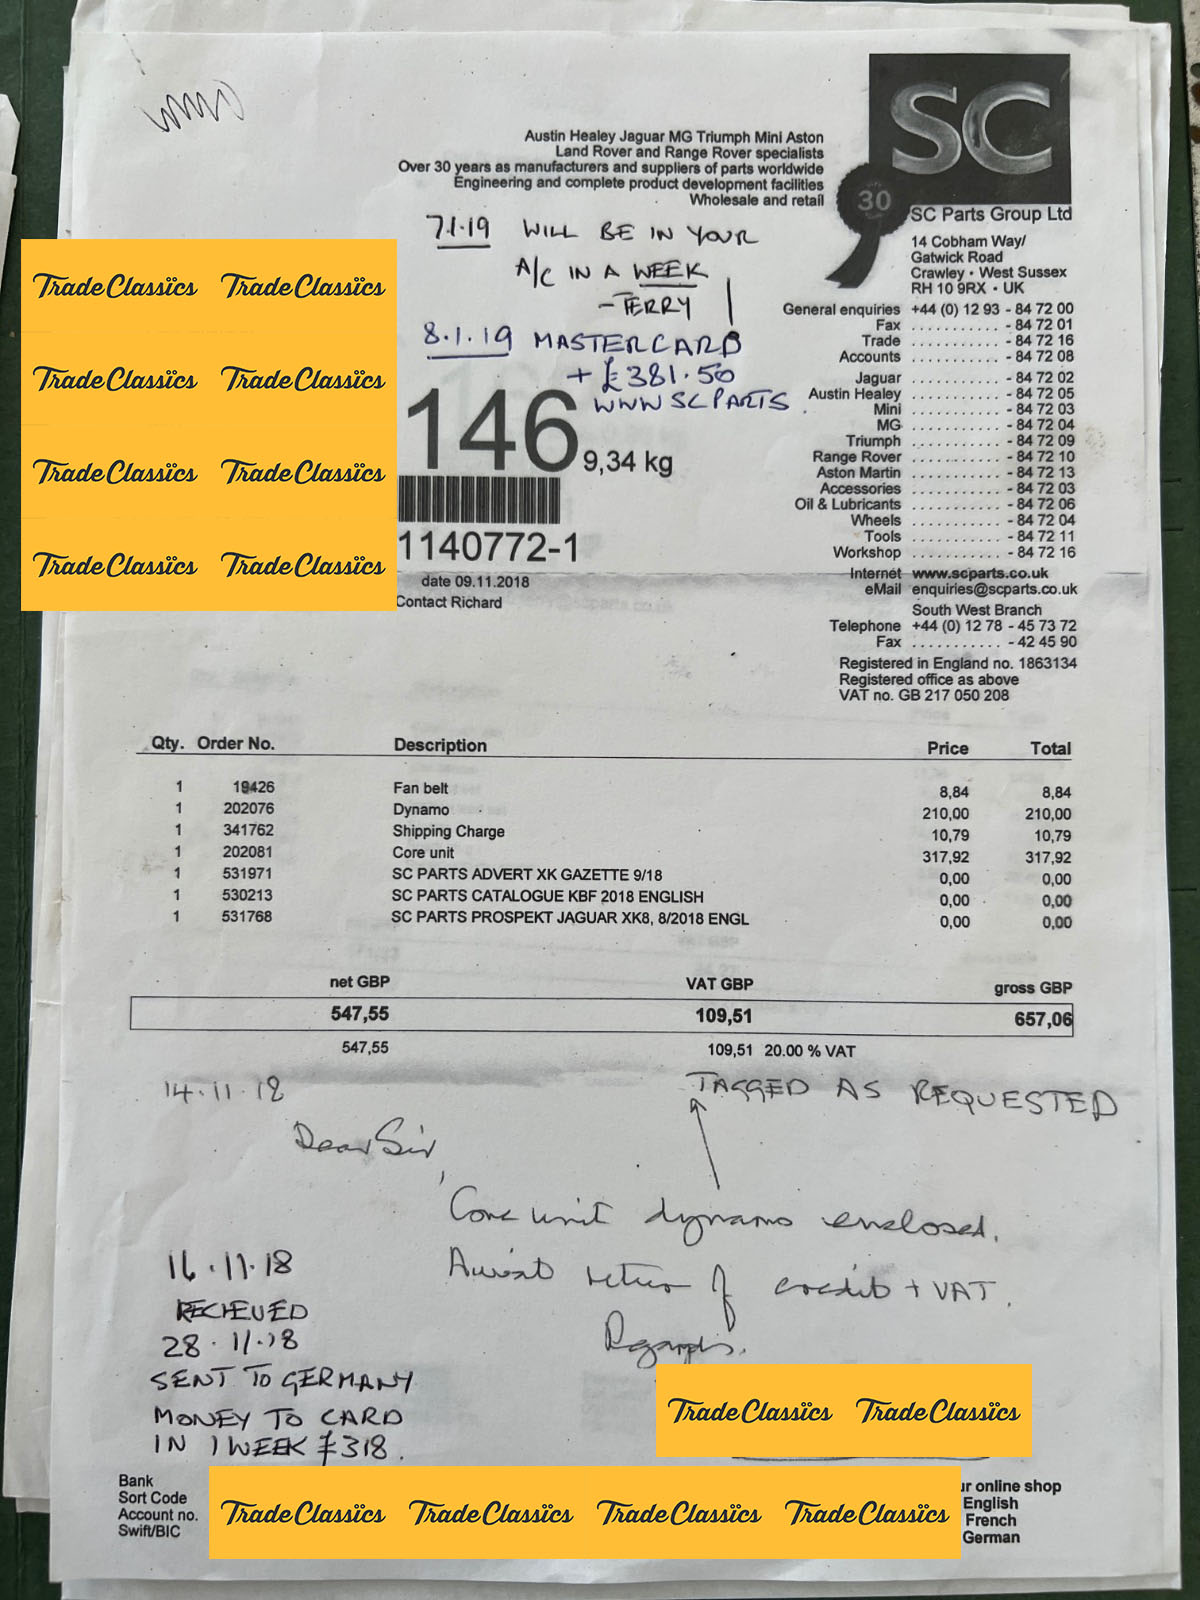 SC
30
Austin Healey Jaguar MG Triumph Mini Aston
Land Rover and Range Rover specialists
Over 30 years as manufacturers and suppliers of parts worldwide
Engineering and complete product development facilities
Wholesale and retail
SC Parts Group Ltd
14 Cobham Way/
Gatwick Road
Crawley • West Sussex
RH 10 9RX • UK
7.1.19 WILL BE IN YOUR
A/C IN A WEEK
- TERRY
8.1.19 MASTERCARD
+ £381.50
WWW SCPARTS
TradeClassics TradeClassics
TradeClassics TradeClassics
TradeClassics TradeClassics
TradeClassics TradeClassics
146 9,34 kg
1140772-1
date 09.11.2018
Contact Richard
General enquiries +44 (0) 12 93 - 84 72 00
Fax ........... - 84 72 01
Trade ........... - 84 72 16
Accounts ........... - 84 72 08
Jaguar ........... - 84 72 02
Austin Healey ........... - 84 72 05
Mini ........... - 84 72 03
MG ........... - 84 72 04
Triumph ........... - 84 72 09
Range Rover ........... - 84 72 10
Aston Martin ........... - 84 72 13
Accessories ........... - 84 72 03
Oil & Lubricants ........... - 84 72 06
Wheels ........... - 84 72 04
Tools ........... - 84 72 11
Workshop ........... - 84 72 16
Internet www.scparts.co.uk
eMail enquiries@scparts.co.uk
South West Branch
Telephone +44 (0) 12 78 - 45 73 72
Fax ........... - 42 45 90
Registered in England no. 1863134
Registered office as above
VAT no. GB 217 050 208
Qty. Order No. Description Price Total
1 19426 Fan belt 8,84 8,84
1 202076 Dynamo 210,00 210,00
1 341762 Shipping Charge 10,79 10,79
1 202081 Core unit 317,92 317,92
1 531971 SC PARTS ADVERT XK GAZETTE 9/18 0,00 0,00
1 530213 SC PARTS CATALOGUE KBF 2018 ENGLISH 0,00 0,00
1 531768 SC PARTS PROSPEKT JAGUAR XK8, 8/2018 ENGL 0,00 0,00
net GBP VAT GBP gross GBP
547,55 109,51 657,06
547,55 109,51 20.00 % VAT
14.11.18 TAGGED AS REQUESTED
Dear Sir,
Core unit dynamo enclosed.
Await return of credit + VAT.
Regards.
16.11.18
RECIEVED
28.11.18
SENT TO GERMANY
MONEY TO CARD
IN 1 WEEK £318.
TradeClassics TradeClassics
Bank
Sort Code
Account no.
Swift/BIC
TradeClassics TradeClassics TradeClassics TradeClassics
ur online shop
English
French
German